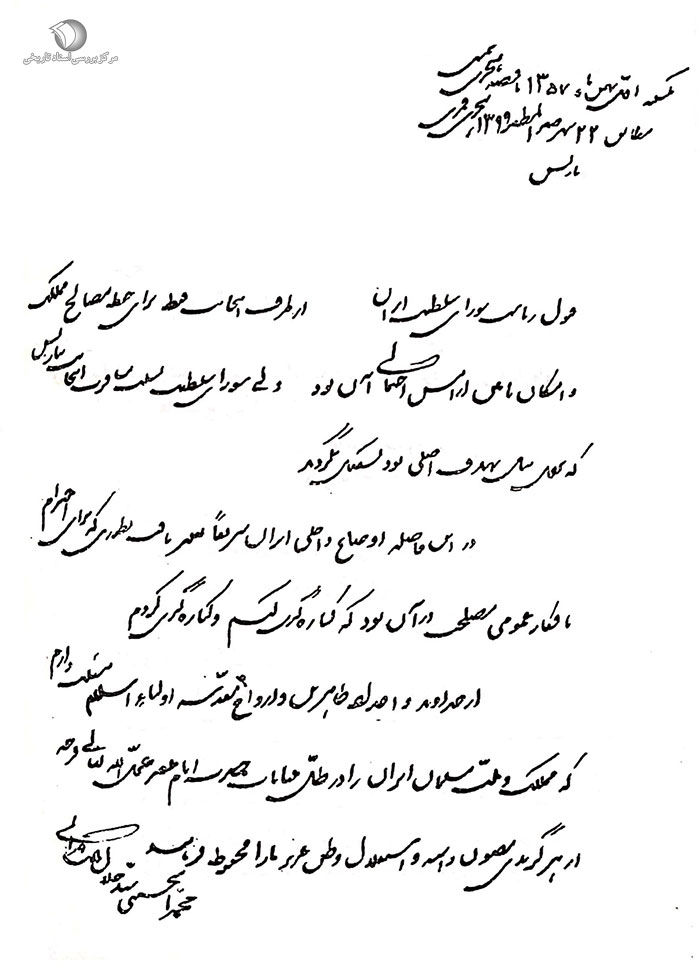 مرکز بررسی اسناد تاریخی
یکشنبه اول بهمن ماه ۱۳۵۷ هجری شمسی
مطابق ۲۲ شهر صفر المظفر ۱۳۹۹ هجری قمری
پاریس
قبول ریاست شورای سلطنت ایران از طرف اینجانب فقط برای حفظ مصالح مملکت
و امکان تأمین آرامش احتمالی آن بود ولی شورای سلطنت بسبب مسافرت اینجانب بپاریس
که برای نیل بهدف اصلی بود تشکیل نگردید
در این فاصله اوضاع داخلی ایران سریعاً تغییر یافت بطوری که برای احترام
بافکار عمومی مصلحت در آن بود که کناره گیری کنم و کناره گیری کردم
از خداوند و اجداد طاهرین و ارواح مقدّسه اولیاء اسلام مسئلت دارم
که مملکت و ملت مسلمان ایران را در ظلّ عنایات حضرت امام عصر عجّل الله تعالی فرجه
از هر گزندی مصون داشته و استقلال وطن عزیز ما را محفوظ فرمایند
سید جلال الدین تهرانی
محمد الحسینی